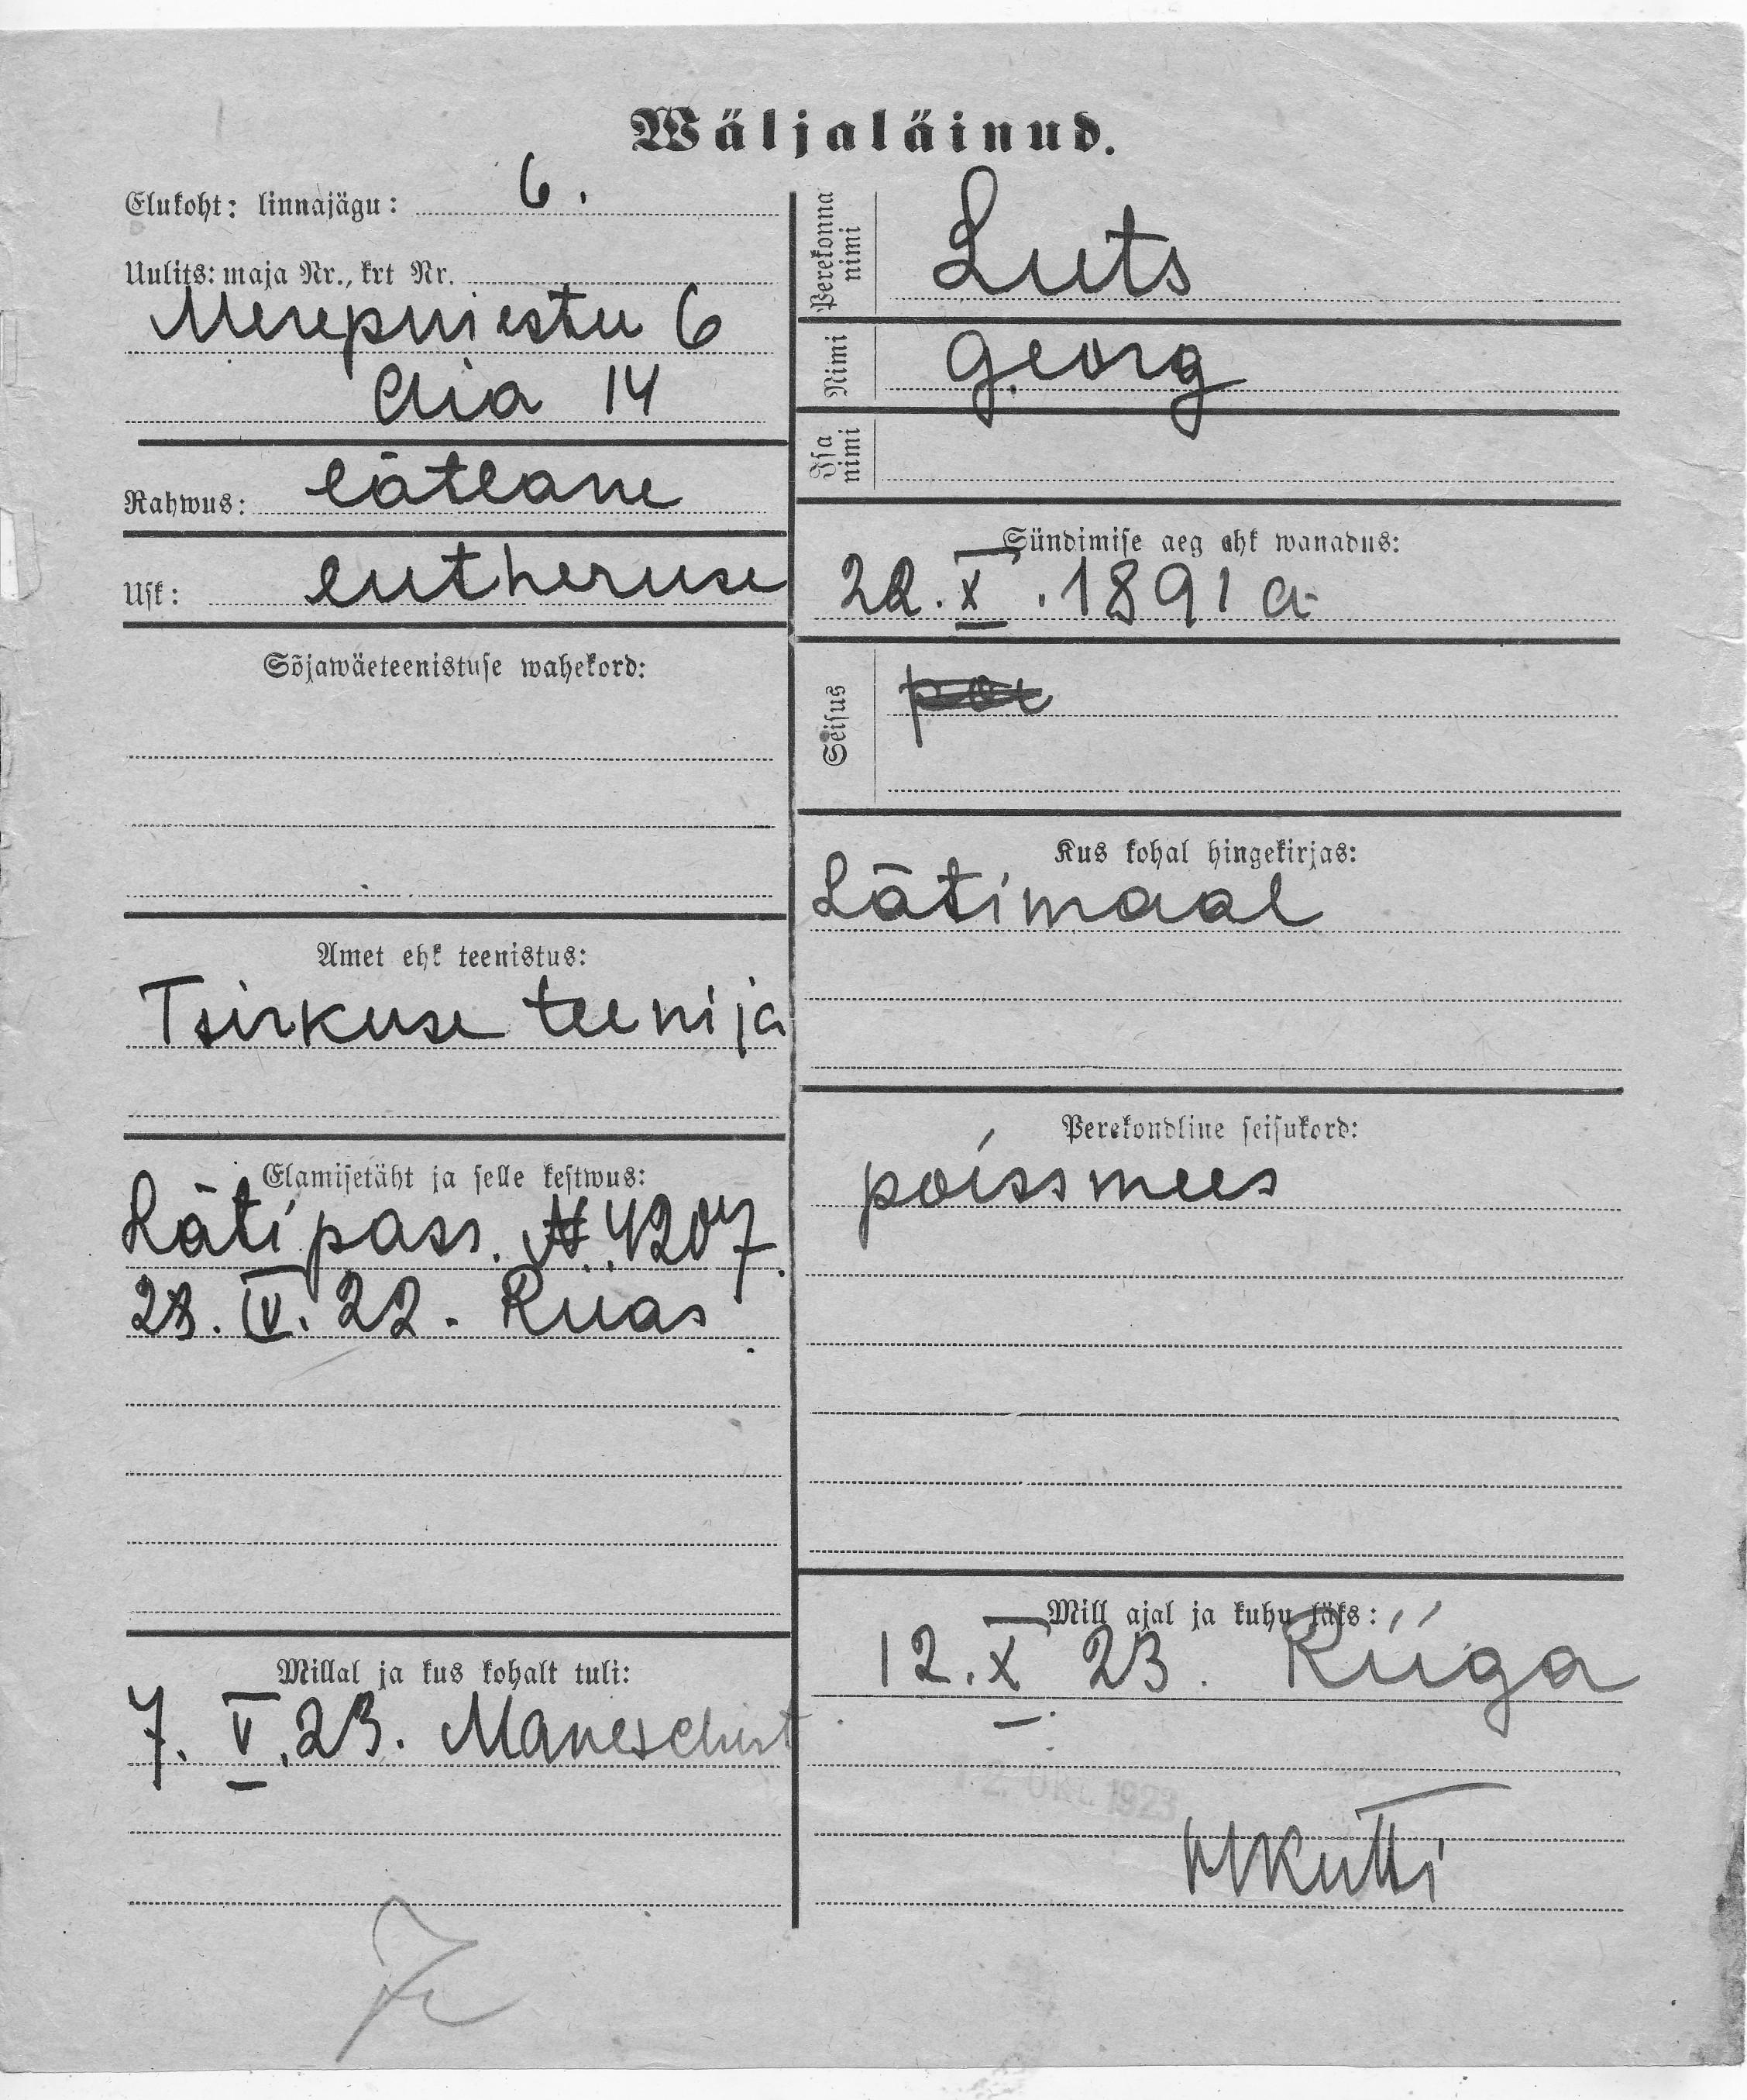 Wäljaläinud.
Elukoht: linnajägu: 6.
Uulits: maja Nr., krt Nr.
Merepuiestee 6
Aia 14
Rahwus: lätlane
Usk: lutheruse
Sõjawäeteenistuse wahekord:
Amet ehk teenistus:
Tsirkuse teenija
Elamisetäht ja selle kestwus:
Läti pass. N. 4207.
23. IV. 22. Riias
Millal ja kus kohalt tuli:
7. V. 23.
Perekonna nimi Luts
Nimi Georg
Isa nimi
Sündimise aeg ehk wanadus:
22. X. 1891 a
Seisus
Kus kohal hingekirjas:
Lätimaal
Perekondline seisukord:
poissmees
Mill ajal ja kuhu läks:
12. X 23. Riiga
12. Okt. 1923